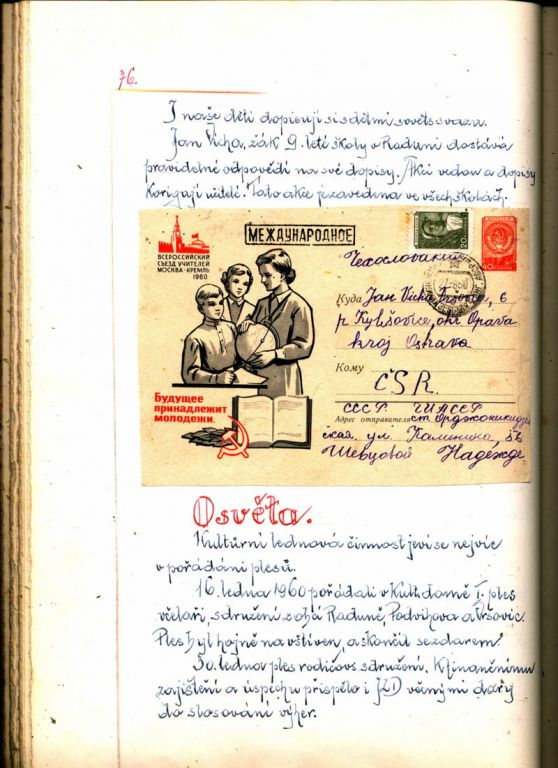 76.
I naše děti dopisují si s dětmi sovět. svazu.
Jan Vícha, žák 9. leté školy v Raduni dostává
pravidelné odpovědi na své dopisy. Akci vedou a dopisy
korigují učitelé. Tato akce je zavedena ve všech školách.
МЕЖДУНАРОДНОЕ
ВСЕРОССИЙСКИЙ
СЪЕЗД УЧИТЕЛЕЙ
МОСКВА·КРЕМЛЬ
1960
20
60
Чехословакия
Куда Jan Vícha, 6
p. Kylešovice, okr. Opava
kroj Ostrava
Кому
ČSR.
СССР ЧИАССР
Адрес отправителя: ст. Орджоникидзев
ская ул. Калинина, 56
Шевцовой Надежде
Будущее
принадлежит
молодежи.
Osvěta.
Kulturní lednová činnost jeví se nejvíc
v pořádání plesů.
16. ledna 1960 pořádali v Kult. domě I. ples
včelaři, sdružení z obcí Raduně, Podvihova a Vršovic.
Ples byl hojně navštíven, a skončil se zdarem.
30. ledna ples rodičov. sdružení. K finančnímu
zajištění a úspěchu přispělo i JZD věcnými dary
do slosování výher.